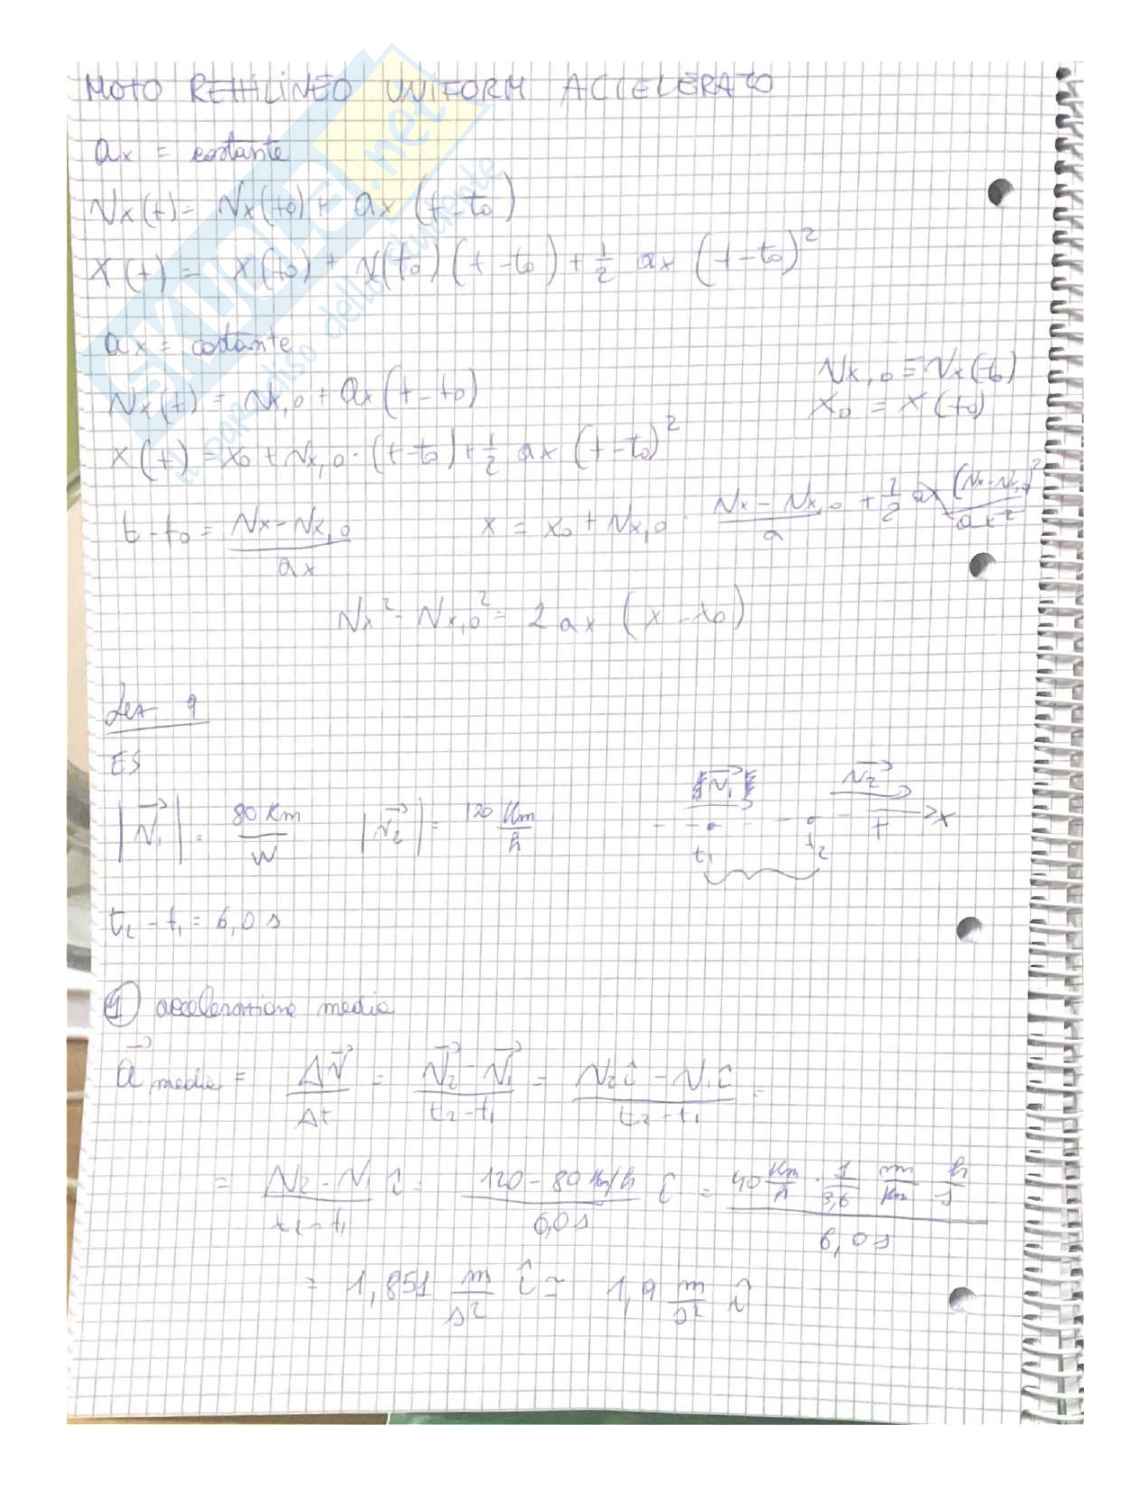 MOTO RETTILINEO UNIFORM ACCELERATO
ax = costante
Vx(t) = Vx(t0) + ax (t-t0)
X(t) = X(t0) + V(t0)(t-t0) + 1/2 ax (t-t0)²
SKUOLA.net
il paradiso dello studente
ax = costante
Vx(t) = Vx,0 + ax(t-t0)
Vx,0 = Vx(t0)
X0 = X(t0)
X(t) = X0 + Vx,0 · (t-t0) + 1/2 ax (t-t0)²
t-t0 = (Vx-Vx,0)/ax
x = x0 + Vx,0 · (Vx-Vx,0)/a + 1/2 ax (Vx-Vx,0)²/ax²
Vx² - Vx,0² = 2 ax (x-x0)
ES
|V1| = 80 Km/
|V2| = 120 Km/h
V1 V2
t1 t2 x
t2 - t1 = 6,0 s
① accelerazione media
a media = ΔV/Δt = (V2-V1)/(t2-t1) = (V2 î - V1 î)/(t2-t1) =
= (V2-V1)/(t2-t1) î = (120-80 Km/h)/(6,0 s) î = (40 Km/h · 1/3,6 m/Km h/s)/(6,0 s)
= 1,851 m/s² î ≃ 1,9 m/s² î